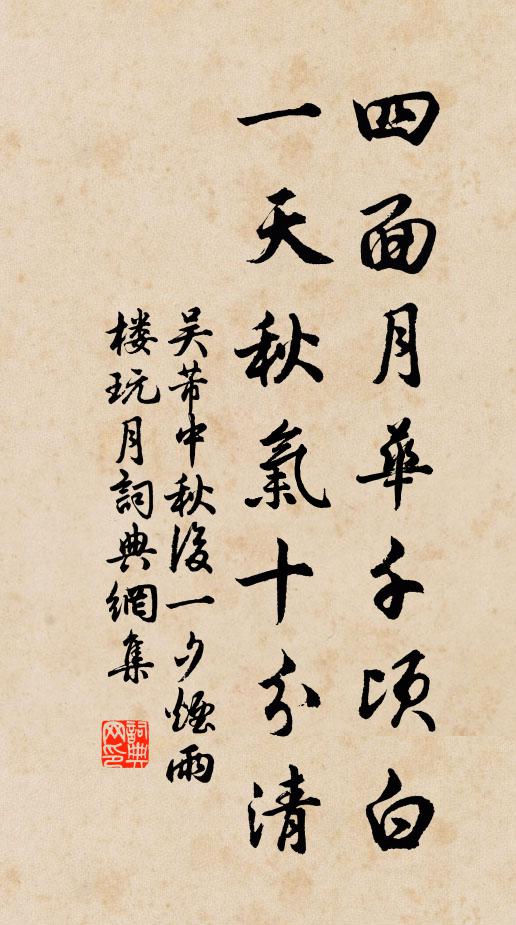 四面月華千頃白
一天秋氣十分清
吳芾中秋後一夕煙雨
楼玩月詞典網集
詞典
网印